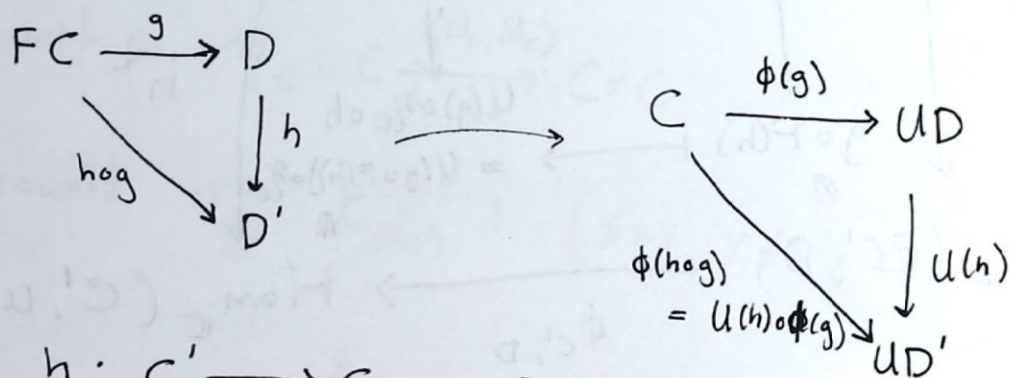 FC g D
h
h∘g
D'
C ϕ(g) UD
U(h)
ϕ(h∘g)
= U(h)∘ϕ(g)
UD'
h : C' → C